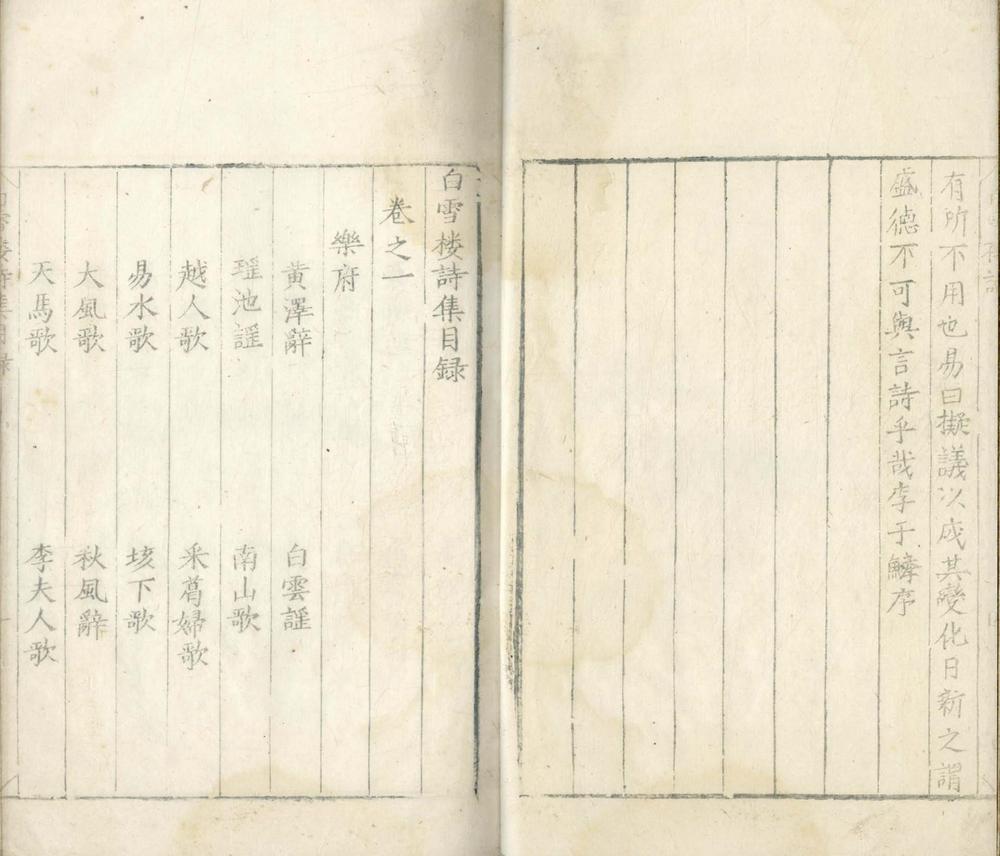 有所不用也易曰擬議以成其變化日新之謂
盛德不可與言詩乎哉李于鱗序
白雪楼詩集目録
卷之一
樂府
黃澤辭 白雲謡
瑶池謡 南山歌
越人歌 采葛婦歌
易水歌 垓下歌
大風歌 秋風辭
天馬歌 李夫人歌